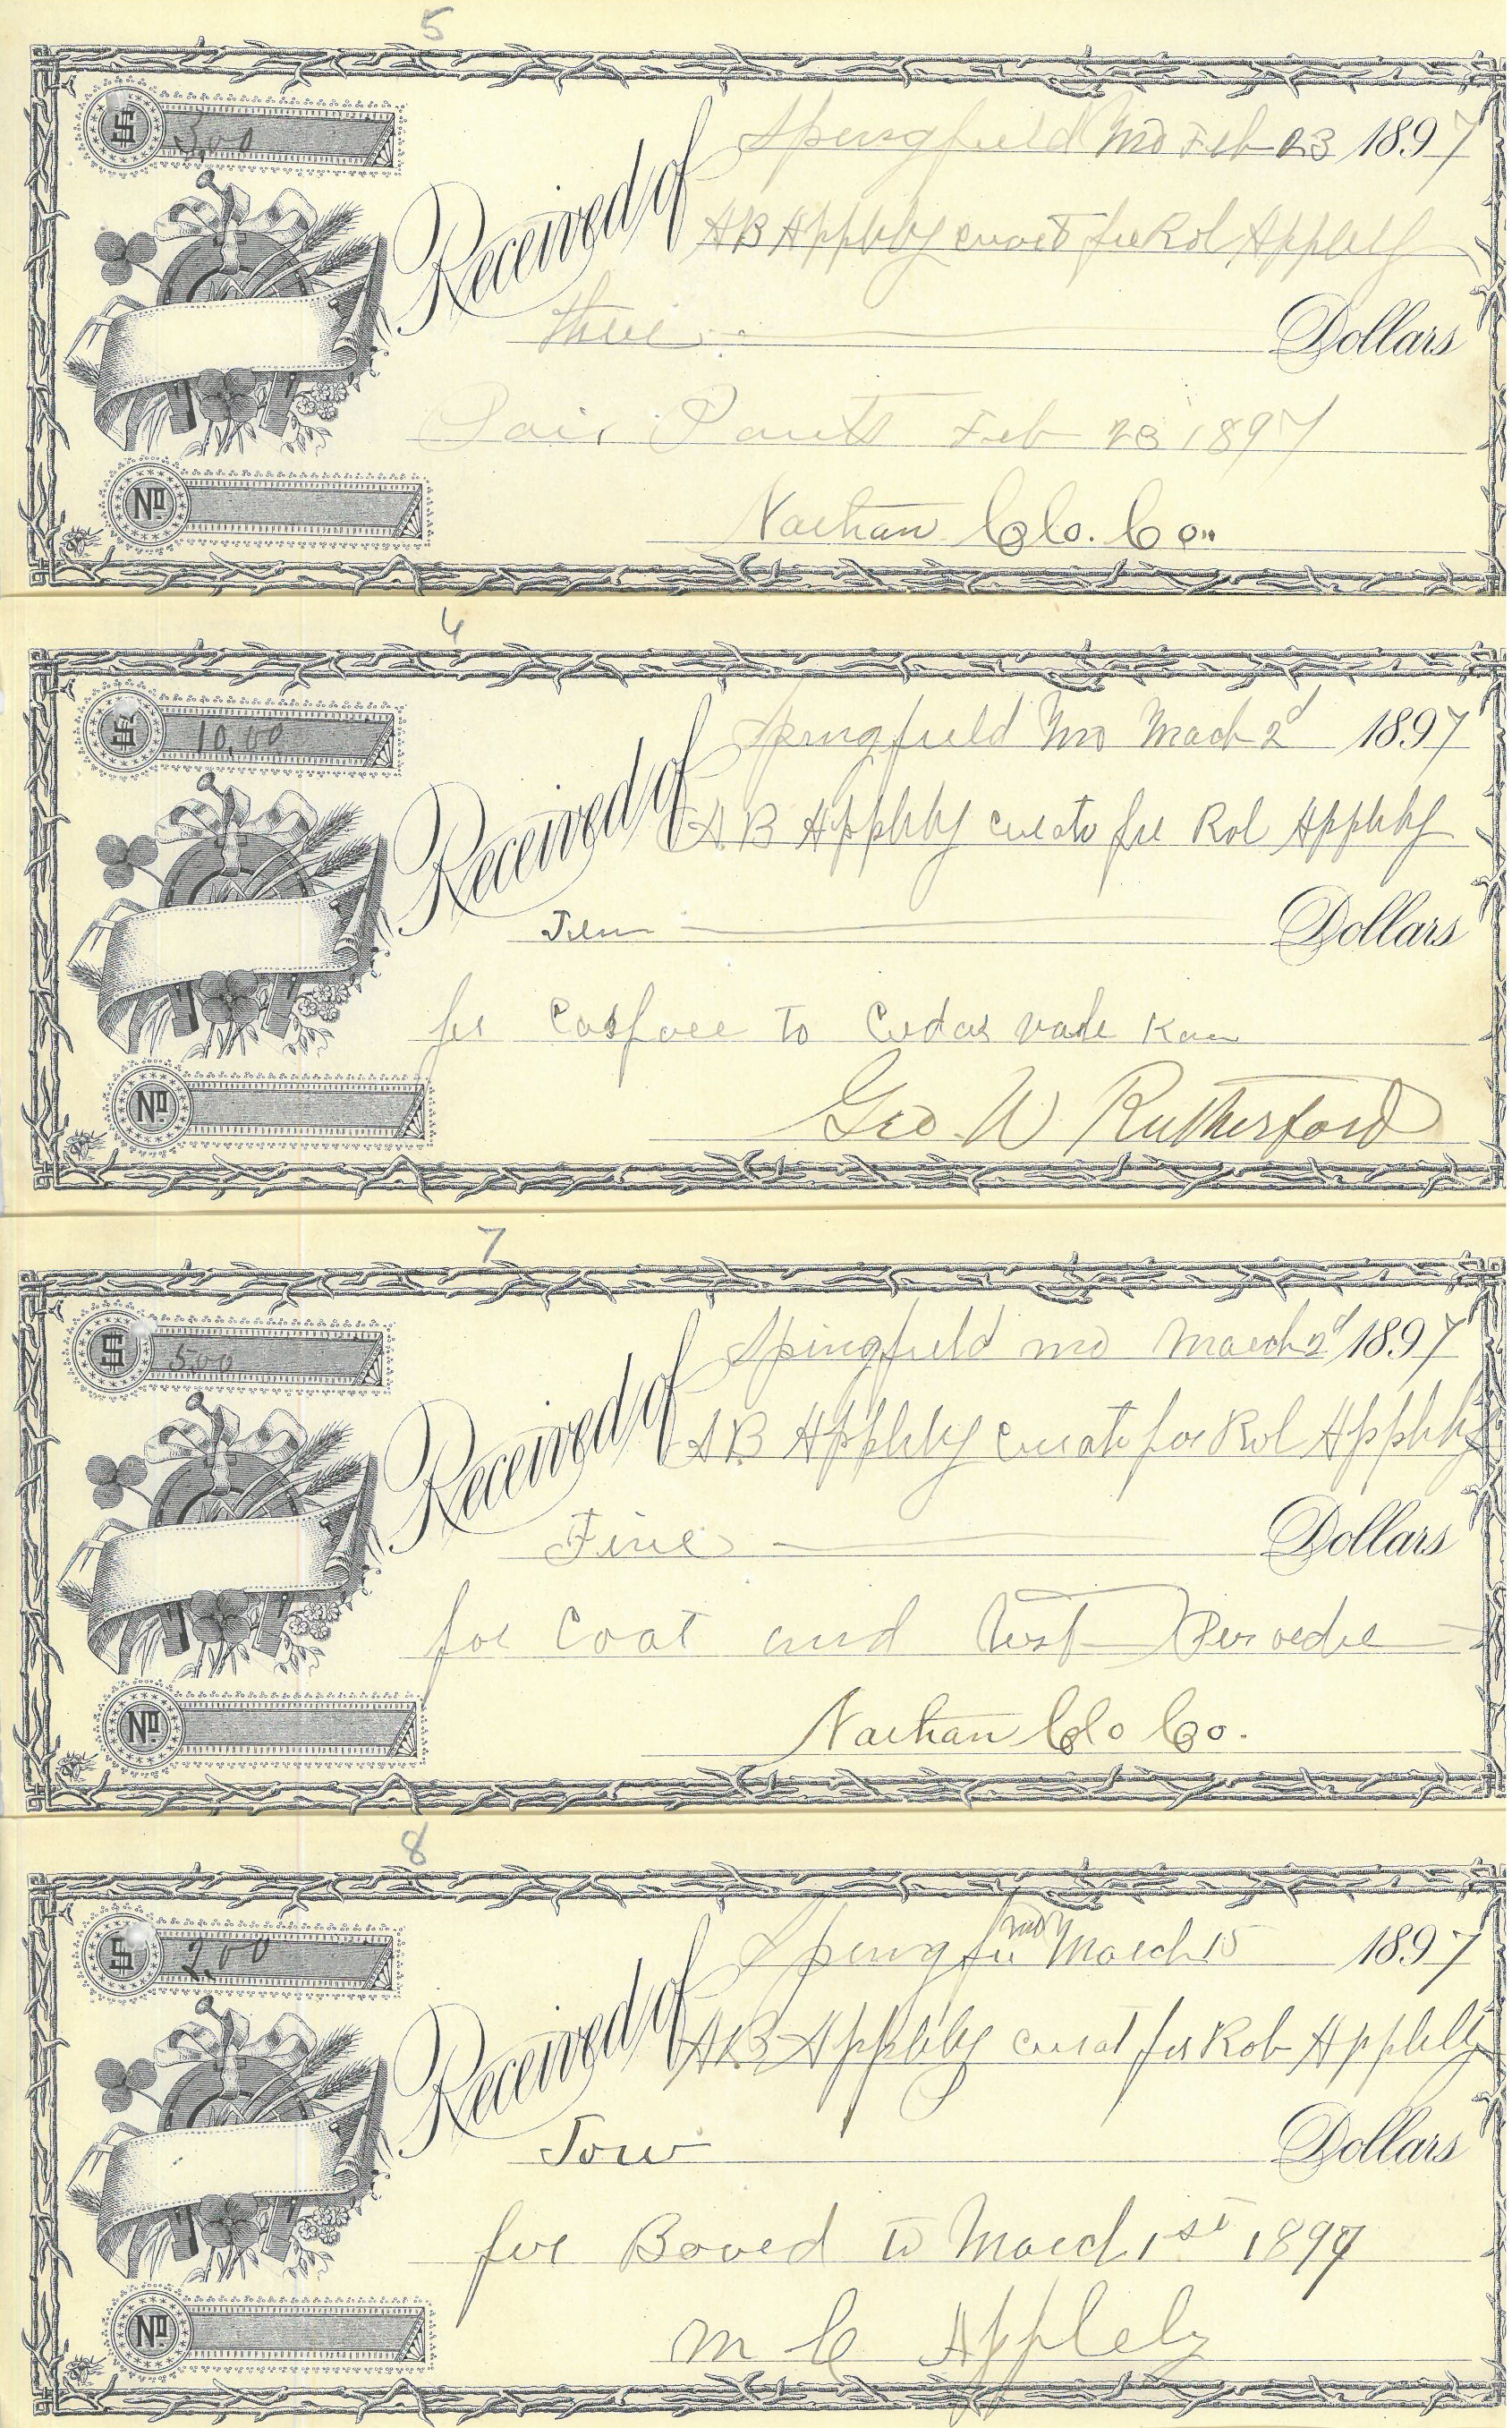 5
$ 3.00
Springfield Mo Feb 23 1897
Received of AB Appleby curat for Rol Appleby
three Dollars
Pair Pants Feb 23 1897
No
Nathan Clo. Co.
6
$ 10.00
Springfield Mo Mach 2d 1897
Received of AB Appleby curato for Rol Appleby
Ten Dollars
for Casfare to Cedar vale Kan
No
Geo W Rutherford
7
$ 5.00
Springfield Mo March 2d 1897
Received of AB Appleby curato for Rol Appleby
Five Dollars
for Coat and Vest
No
Nathan Clo Co.
8
$ 2.00
March 15 1897
Received of AB Appleby curat for Rob Appleby
Tow Dollars
for Board to March 1st 1897
No
M C Appleby